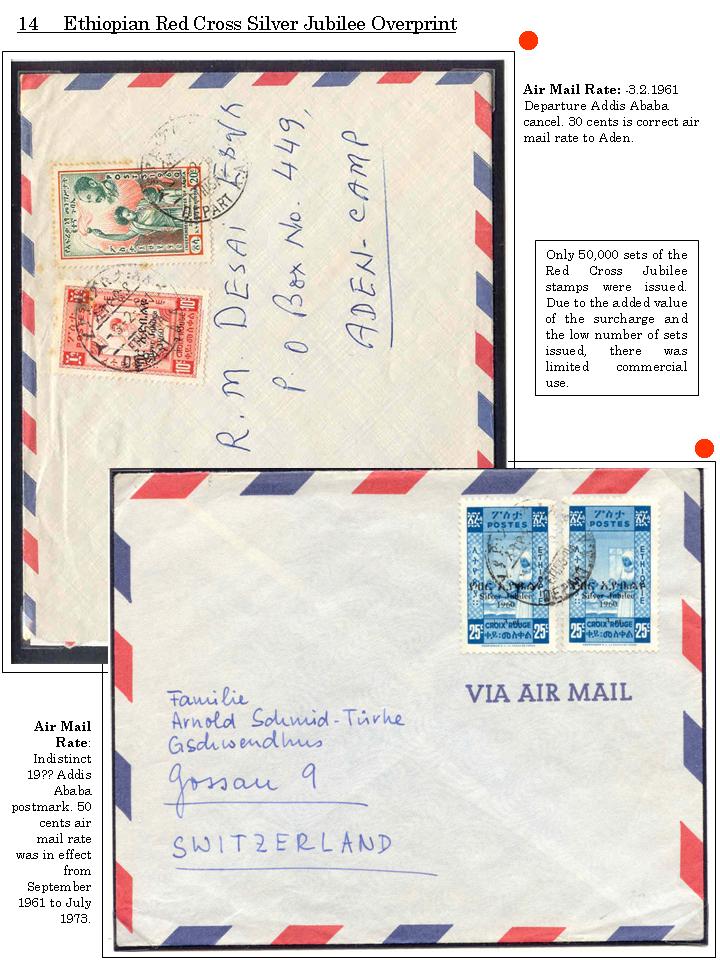 14 Ethiopian Red Cross Silver Jubilee Overprint
Air Mail Rate: -3.2.1961
Departure Addis Ababa
cancel. 30 cents is correct air
mail rate to Aden.
R. M. DESAI
P. O Box No. 449,
ADEN-CAMP
20c
POSTES
10c
10c
CROIX ROUGE
DEPART
Only 50,000 sets of the
Red Cross Jubilee
stamps were issued.
Due to the added value
of the surcharge and
the low number of sets
issued, there was
limited commercial
use.
ፖስታ
POSTES
ETHIOPIE
Silver Jubilee
1960
CROIX ROUGE
25c 25c
ቀይ፡መስቀል
ፖስታ
POSTES
ETHIOPIE
Silver Jubilee
1960
CROIX ROUGE
25c 25c
ቀይ፡መስቀል
DEPART
VIA AIR MAIL
Familie
Arnold Schmid-Türke
Gschwendhus
Gossau 9
SWITZERLAND
Air Mail
Rate:
Indistinct
19?? Addis
Ababa
postmark. 50
cents air
mail rate
was in effect
from
September
1961 to July
1973.